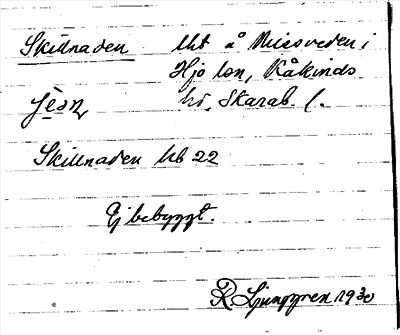 Skillnaden lht å Missveden i
Hjo lsn, Kåkinds
hd. Skarab. l.
Skillnaden hb 22
Ej bebyggt.
R Ljunggren 1930